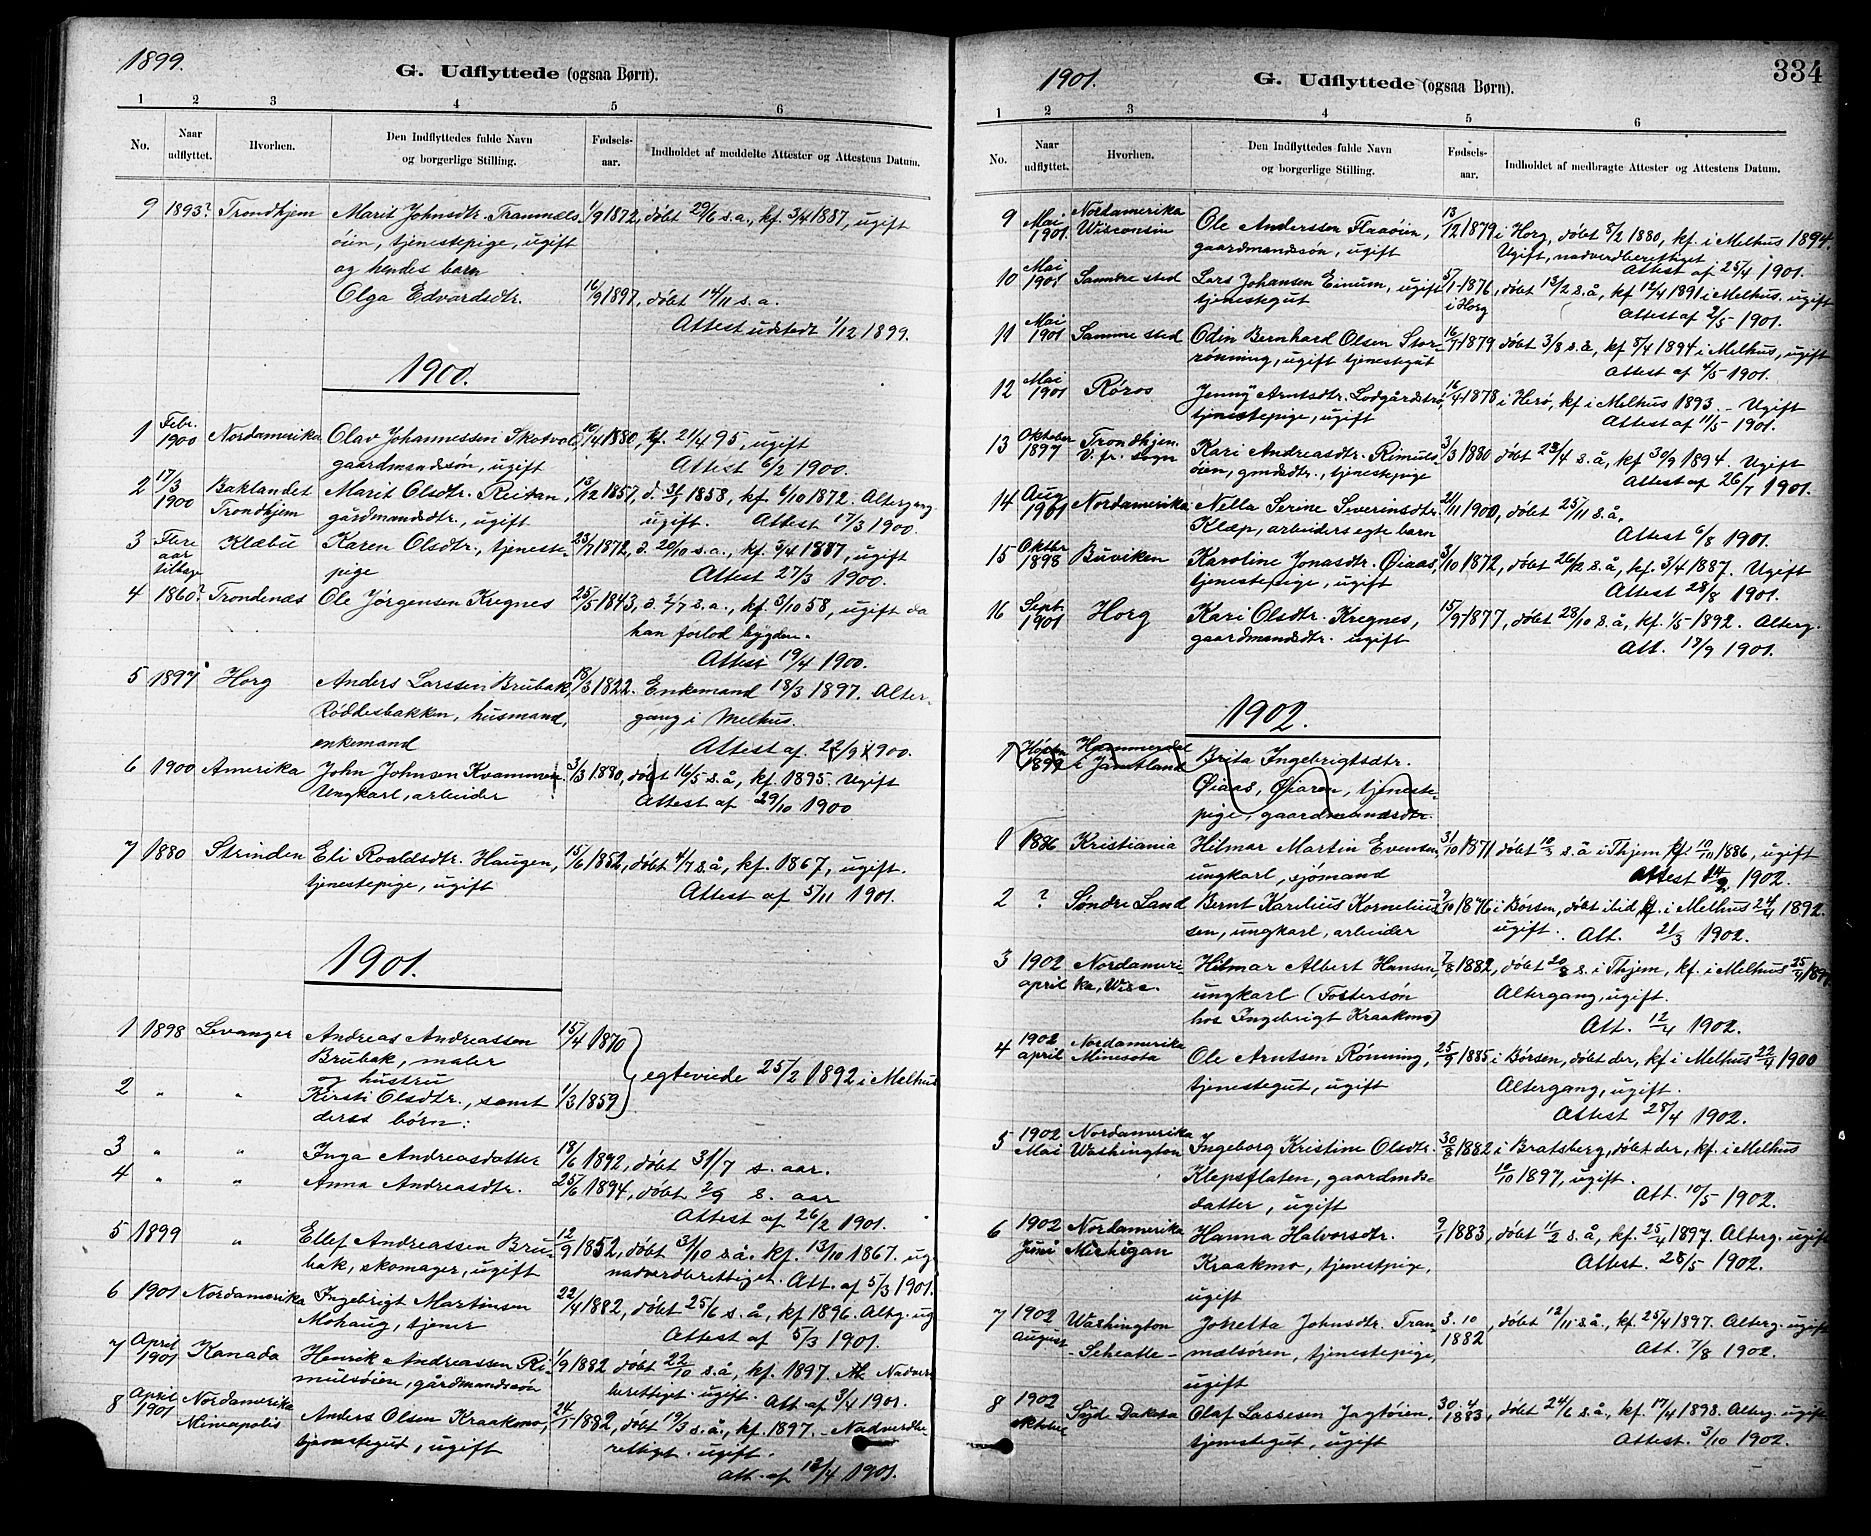 1899.
G. Udflyttede (ogsaa Børn).
1 2 3 4 5 6
No. Naar udflyttet. Hvorhen. Den Indflyttedes fulde Navn og borgerlige Stilling. Fødsels-aar. Indholdet af meddelte Attester og Attestens Datum.
9 1893? Trondhjem Marit Johnsdtr. Tranmæls- 1/9 1872, døbt 29/6 s.a., kf. 3/4 1887, ugift
øien, tjenestepige, ugift
og hendes barn
Olga Edvardsdtr. 16/9 1897, døbt 14/11 s.a.
Attest udstedt 1/12 1899.
1900.
1 Febr. 1900 Nordamerika Olav Johannessen Skotvol, 10/4 1880, kf. 21/4 95, ugift
gaardmandssøn, ugift Attest 6/2 1900.
2 17/3 1900 Baklandet Trondhjem Marit Olsdtr. Reitan, 13/12 1857, d. 31/1 1858, kf. 6/10 1872. Altergang.
gårdmandsdtr., ugift ugift. Attest 17/3 1900.
3 Flere aar tilbage Klæbu Karen Olsdtr., tjeneste- 23/7 1872, d. 20/10 s.a., kf. 3/4 1887, ugift
pige Attest 27/3 1900.
4 1860? Trondenæs Ole Jørgensen Kregnes 25/5 1843, d. 2/7 s.a., kf. 3/10 58, ugift da
han forlod bygden.
Attest 19/4 1900.
5 1897 Horg Anders Larssen Brubak, 18/3 1822. Enkemand 18/3 1897. Alter-
Røddesbakken, husmand, gang i Melhus.
enkemand Attest af 22/9 1900.
6 1900 Amerika John Johnsen Kvammen 3/3 1880, døbt 16/5 s.å, kf. 1895. Ugift
Ungkarl, arbeider Attest af 29/10 1900
7 1880 Strinden Eli Roaldsdtr. Haugen, 15/6 1852, døbt 4/7 s.å, kf. 1867, ugift.
tjenestepige, ugift Attest af 5/11 1901.
1901.
1 1898 Levanger Andreas Andreassen 15/4 1870
Brubak, maler
og hustru egteviede 25/2 1892 i Melhus
2 " " Kirsti Olsdtr., samt 1/3 1859
deres børn:
3 " " Inga Andreasdatter 18/6 1892, døbt 31/7 s. aar.
4 " " Anna Andreasdtr. 25/6 1894, døbt 2/9 s. aar
Attest af 26/2 1901.
5 1899 " Ellef Andreassen Bru- 12/9 1852, døbt 31/10 s.å. kf. 13/10 1867. ug.
bak, skomager, ugift nadverdberettiget. Att. af 5/3 1901.
6 1901 Nordamerika Ingebrigt Martinsen 22/4 1882, døbt 25/6 s.å, kf 1896. Altg. ug
Mohaug, tjener Attest af 5/3 1901.
7 April 1901 Kanada Henrik Andreassen Ri- 1/9 1882 døbt 22/10 s.å, kf. 1897. Nadver-
mulsøien, gårdmandssøn berettiget. ugift. Att. af 3/4 1901.
8 April 1901 Nordamerika Mineapolis Anders Olsen Kraakmo, 24/1 1882, døbt 19/3 s.å., kf. 1897. Nadverdbe
tjenestegut, ugift rettiget. ugift.
Att. af 12/4 1901.
1901.
G. Udflyttede (ogsaa Børn).
334
1 2 3 4 5 6
No. Naar udflyttet. Hvorhen. Den Indflyttedes fulde Navn og borgerlige Stilling. Fødsels-aar. Indholdet af medbragte Attester og Attestens Datum.
9 Mai 1901. Nordamerika Wisconsin Ole Anderssen Flaaøien, 13/12 1879 i Horg, døbt 8/2 1880, kf. i Melhus 1894.
gaardmandssøn, ugift Ugift, nadverdberettiget
Attest af 25/4 1901.
10 Mai 1901 Samme sted Lars Johansen Einum, ugift 5/1 1876, døbt 13/2 s.å, kf 12/4 1891 i Melhus, ugift
tjenestegut i Horg Attest af 2/5 1901.
11 Mai 1901 Samme sted Odin Bernhard Olsen Stor- 16/7 1879 døbt 3/8 s.å, kf 8/4 1894 i Melhus, ugift
rønning, ugift tjenestegut Attest af 4/5 1901.
12 Mai 1901 Røros Jenny Arntsdtr. Lodgårdstrø, 16/4 1878 i Herø, kf i Melhus 1893. Ugift
tjenestepige, ugift Attest af 11/5 1901.
13 Oktober 1897 Trondhjem. V. fr. sogn Kari Andreasdtr. Rimuls- 3/3 1880 døbt 28/4 s.å, kf 30/9 1894. Ugift
øien, gmdsdtr., tjenestepige Attest af 26/7 1901.
14 Aug 1901 Nordamerika Nella Serine Severinsdtr. 21/11 1900, døbt 25/11 s.å.
Klæp, arbeiders egte barn Attest 6/8 1901.
15 Oktbr 1898 Buviken Karoline Jonasdtr. Øiaas, 3/10 1872, døbt 26/12 s.å, kf. 3/4 1887. Ugift
tjenestepige, ugift Attest 28/8 1901.
16 Sept. 1901 Horg Kari Olsdtr. Kregnes, 15/9 1877, døbt 28/10 s.å, kf. 1/5 1892. Alterg.
gaardmandsdtr. ugift Att. 13/9 1901.
1902.
1 Høsten 1899 Hammerdal i Jämtland Brita Ingebrigtsdtr.
Øiaas, Øiaren, tjeneste-
pige, gaardmandsdtr.
1 1886 Kristiania Hilmar Martin Evensen, 31/10 1871 døbt 10/3 s.å i Thjem kf. 10/10 1886, ugift
ungkarl, sjømand Attest 14/2 1902.
2 ? Søndre Land Bernt Karelius Kornelius- 7/10 1876 i Børsen, døbt ibid, kf. i Melhus 24/4 1892.
sen, ungkarl, arbeider ugift. Att. 21/3 1902.
3 1902 april Nordameri- ka, Wisc. Hilmar Albert Hansen, 7/8 1882, døbt 20/8 s. i Thjem, kf. i Melhus 25/4 1897.
ungkarl (Fostersøn Altergang, ugift.
hos Ingebrigt Kraakmo) Att. 12/4 1902.
4 1902 april Nordamerika Minesota Ole Arntsen Rønning, 25/9 1885 i Børsen, døbt der, kf i Melhus 22/4 1900
tjenestegut, ugift Altergang, ugift.
Attest 28/4 1902.
5 1902 Mai Nordamerika Washington Ingeborg Kristine Olsdtr. 30/8 1882 i Bratsberg, døbt der, kf. i Melhus
Klepsflaten, gaardmds- 10/10 1897, ugift.
datter, ugift Att. 10/5 1902.
6 1902 Juni Nordamerika Michigan Hanna Halvorsdtr. 9/1 1883, døbt 11/2 s.å, kf. 25/4 1897. Alterg. ugift
Kraakmo, tjenestpige, Attest. 28/5 1902.
ugift
7 1902 August Washington - Scheatle - Jonetta Johnsdtr. Tran- 3. 10 1882, døbt 12/11 s.å, kf. 25/4 1897. Alterg. ugift
mælsøren, tjenestepige, Att. 7/8 1902.
ugift
8 1902 oktober Syd Dakota Olaf Lassesen Jagtøien, 30. 4 1883, døbt 24/6 s.å, kf. 17/4 1898. Alterg. ugift
tjenestegut, ugift Attest. 3/10 1902.